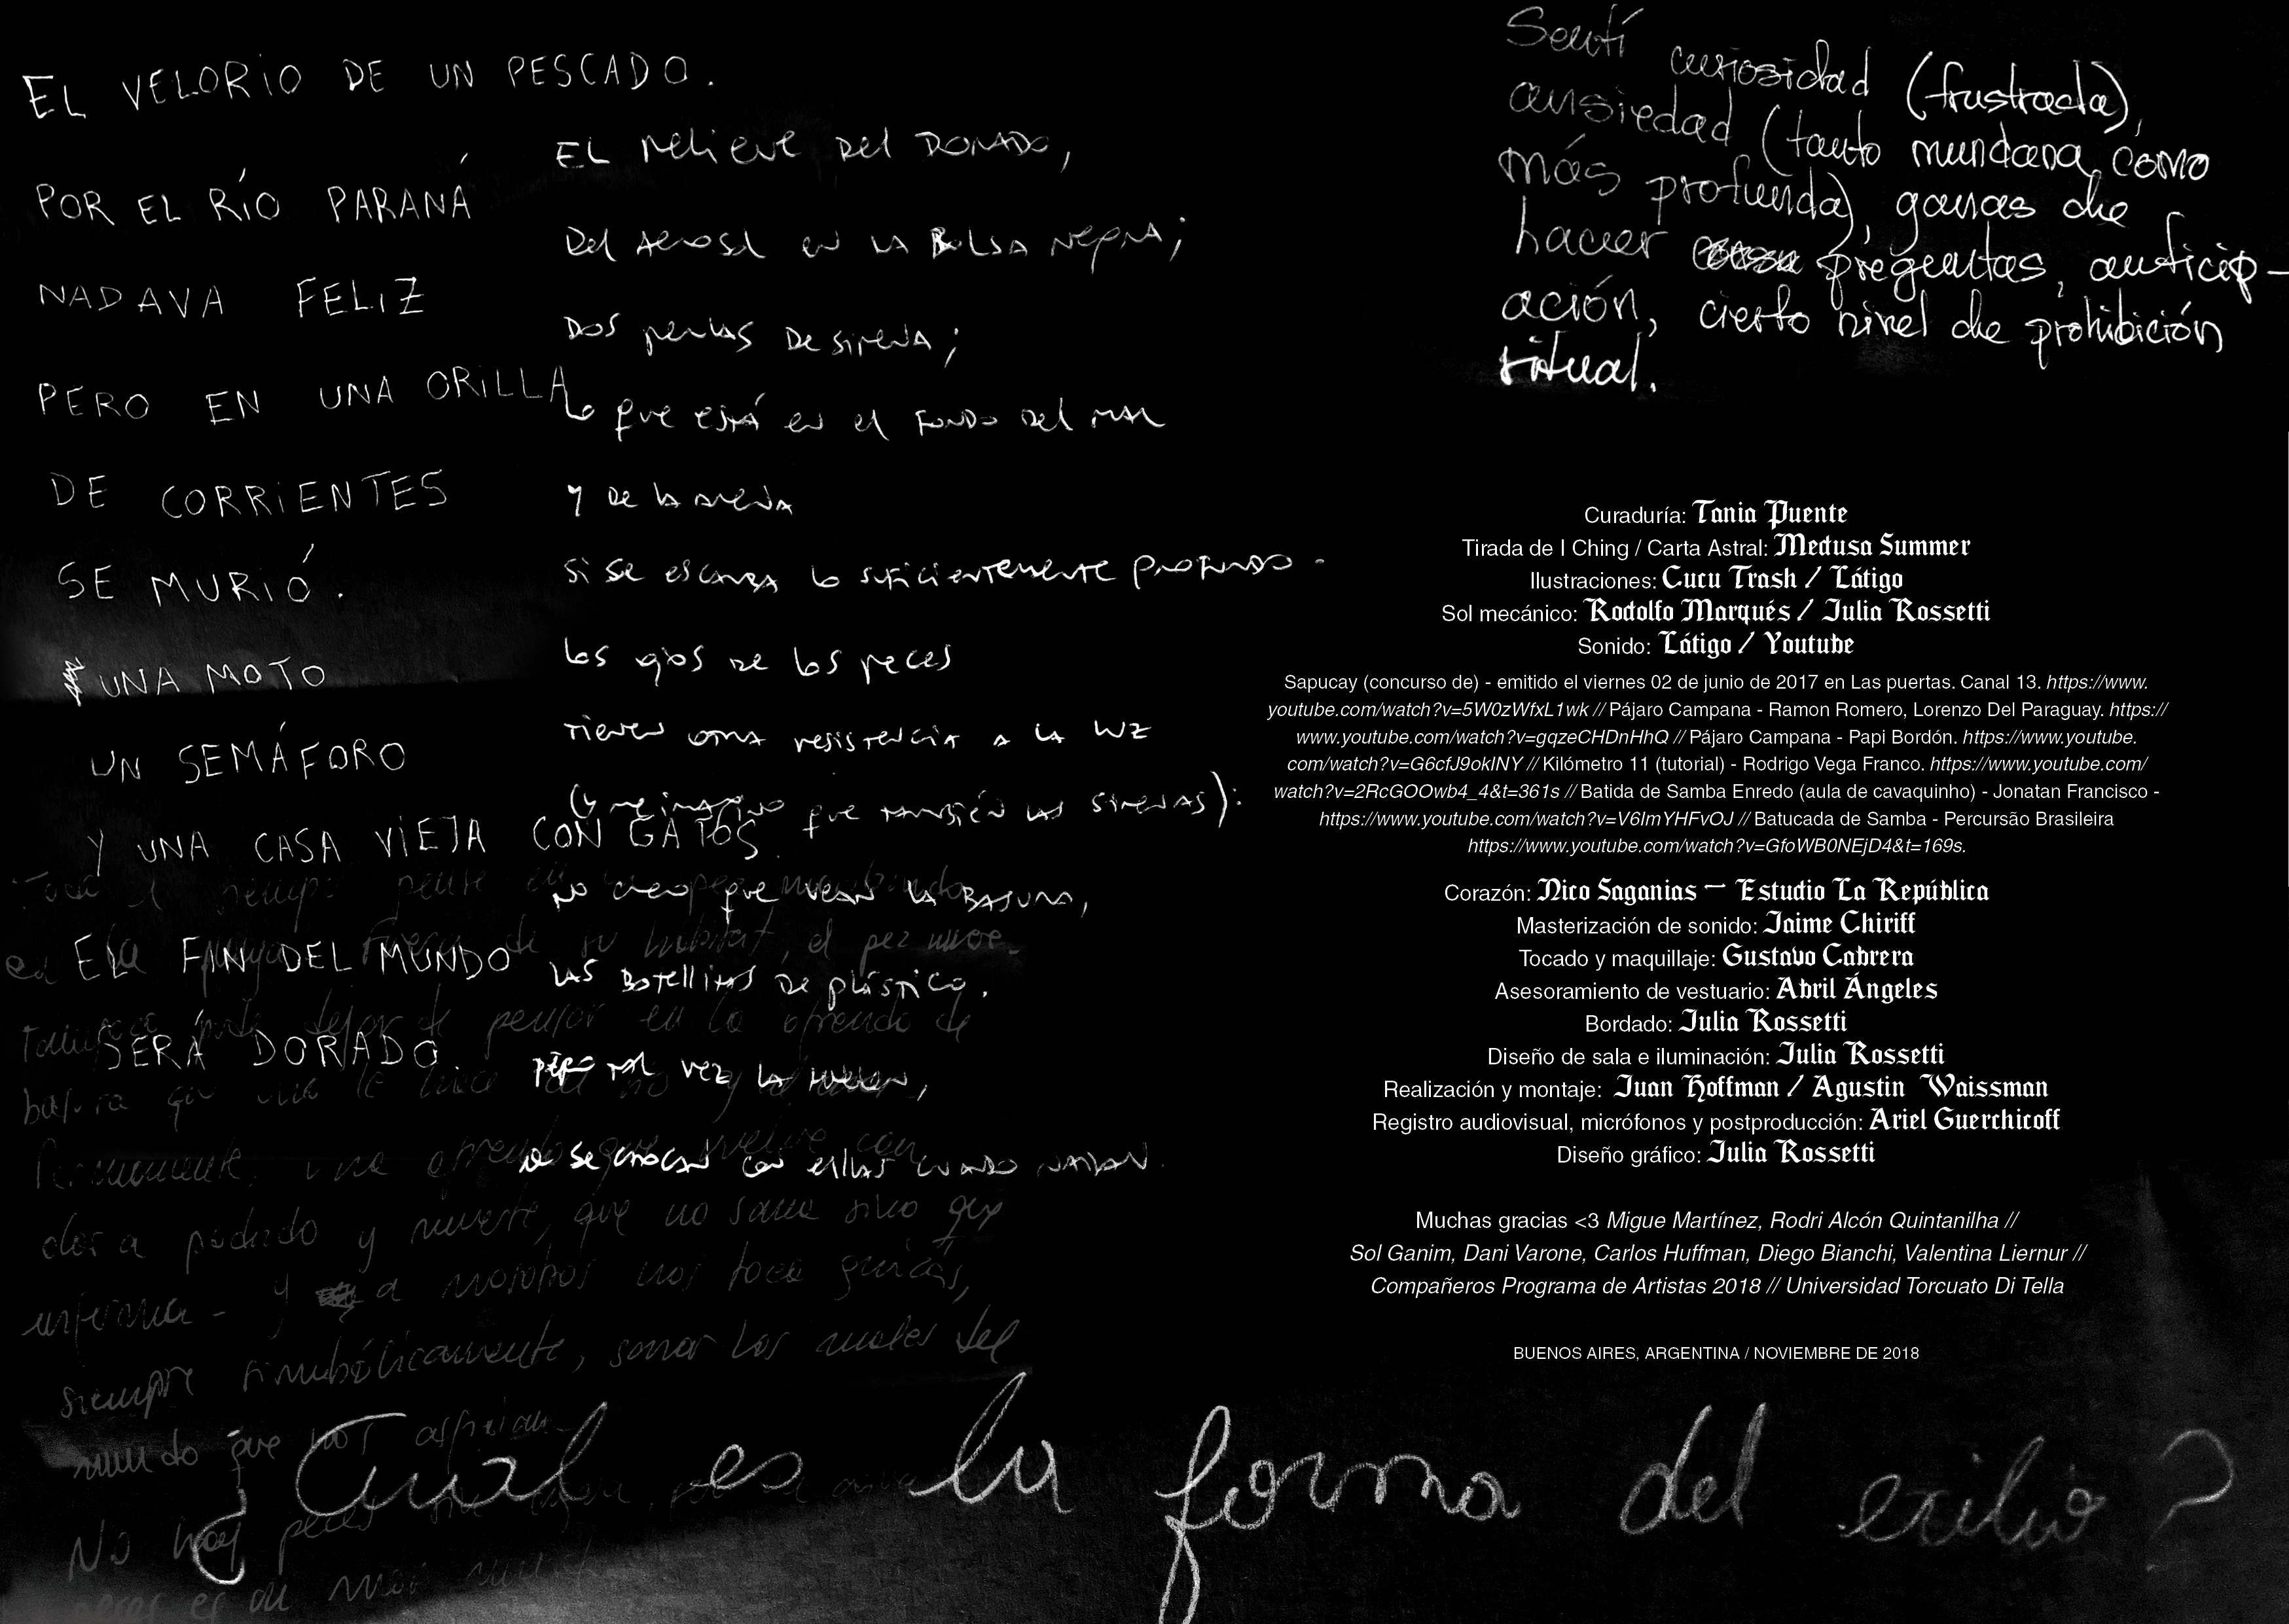 EL VELORIO DE UN PESCADO.
POR EL RÍO PARANÁ
NADAVA FELIZ
PERO EN UNA ORILLA
DE CORRIENTES
SE MURIÓ.
UNA MOTO
UN SEMÁFORO
Y UNA CASA VIEJA CON GATOS.
EL FIN DEL MUNDO
SERÁ DORADO.
EL relieve Del DORADO,
Del Aerosol en LA BOLSA Negra;
DOS perlas De sirena;
Lo que está en el FONDO Del mar
y De la arena
si se escarba lo suficientemente profundo -
los ojos De los peces
Tienen otra resistencia A LA luz
(y me imagino que también las sirenas):
No creo que vean la BASURA,
LAS BOTELLITAS De plástico.
tal vez la huelen,
se chocan con ellas cuando nadan.
en la de su habitat, el pez muere
dejar de pensar en la ofrenda de
basura que
una ofrenda que vuelve con
olor a podrido y muerte, que no sana sino que
enferma - y a nosotros nos toca quizás,
siempre simbólicamente, sanar los males del
mundo que nos
No hay peces
Sentí curiosidad (frustrada),
ansiedad (tanto mundana como
más profunda), ganas de
hacer preguntas, anticip-
ación, cierto nivel de prohibición
ritual.
Curaduría: Tania Puente
Tirada de I Ching / Carta Astral: Medusa Summer
Ilustraciones: Cucu Trash / Látigo
Sol mecánico: Rodolfo Marqués / Julia Rossetti
Sonido: Látigo / Youtube
Sapucay (concurso de) - emitido el viernes 02 de junio de 2017 en Las puertas. Canal 13. https://www.
youtube.com/watch?v=5W0zWfxL1wk // Pájaro Campana - Ramon Romero, Lorenzo Del Paraguay. https://
www.youtube.com/watch?v=gqzeCHDnHhQ // Pájaro Campana - Papi Bordón. https://www.youtube.
com/watch?v=G6cfJ9oklNY // Kilómetro 11 (tutorial) - Rodrigo Vega Franco. https://www.youtube.com/
watch?v=2RcGOOwb4_4&t=361s // Batida de Samba Enredo (aula de cavaquinho) - Jonatan Francisco -
https://www.youtube.com/watch?v=V6ImYHFvOJ // Batucada de Samba - Percursão Brasileira
https://www.youtube.com/watch?v=GfoWB0NEjD4&t=169s.
Corazón: Nico Saganias – Estudio La República
Masterización de sonido: Jaime Chiriff
Tocado y maquillaje: Gustavo Cabrera
Asesoramiento de vestuario: Abril Ángeles
Bordado: Julia Rossetti
Diseño de sala e iluminación: Julia Rossetti
Realización y montaje: Juan Hoffman / Agustin Waissman
Registro audiovisual, micrófonos y postproducción: Ariel Guerchicoff
Diseño gráfico: Julia Rossetti
Muchas gracias <3 Migue Martínez, Rodri Alcón Quintanilha //
Sol Ganim, Dani Varone, Carlos Huffman, Diego Bianchi, Valentina Liernur //
Compañeros Programa de Artistas 2018 // Universidad Torcuato Di Tella
BUENOS AIRES, ARGENTINA / NOVIEMBRE DE 2018
¿Cual es la forma del exilio?